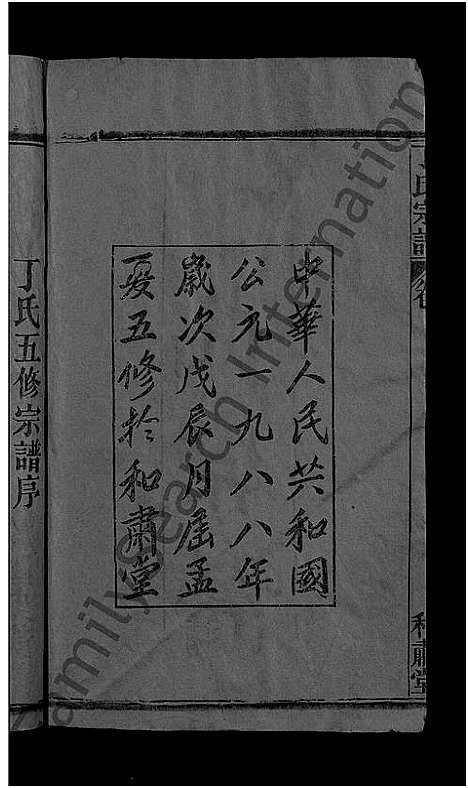 中華人民共和國
公元一九八八年
歲次戊辰月屆孟
夏五修於和肅堂
丁氏五修宗譜序
氏宗譜 卷
和肅堂
Family Search International